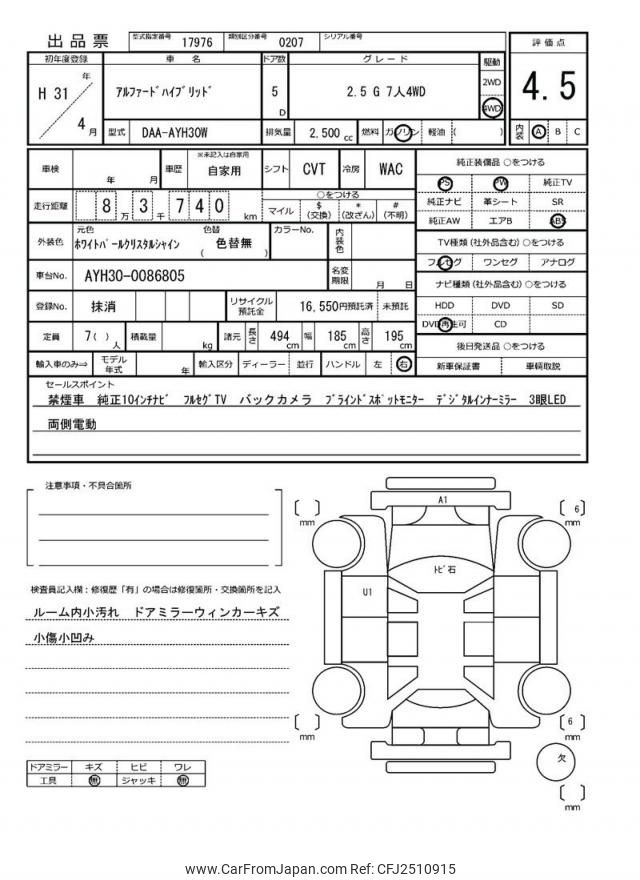 出品票 型式指定番号 17976 類別区分番号 0207 シリアル番号
初年度登録 車 名 ドア数 グレード 駆動 評価点
H 31 年 4 月 アルファードハイブリッド 5 D 2.5 G 7人4WD 2WD 4WD 4.5
型式 DAA-AYH30W 排気量 2,500 cc 燃料 ガソリン 軽油 ( ) 内装 A B C
車検 年 月 車歴 ※未記入は自家用 自家用 シフト CVT 冷房 WAC 純正装備品 ○をつける
PS PW 純正TV
走行距離 8 万 3 千 7 4 0 km ○をつける
マイル $ (交換) * (改ざん) # (不明)
純正ナビ 革シート SR
純正AW エアB ABS
外装色 元色 ホワイトパールクリスタルシャイン 色替 ( 色替無 ) カラーNo. 内装色
TV種類(社外品含む) ○をつける
フルセグ ワンセグ アナログ
車台No. AYH30-0086805 名変期限 月 日
ナビ種類(社外品含む) ○をつける
登録No. 抹消 リサイクル預託金 16,550円預託済 未預託
HDD DVD SD
DVD再生可 CD
定員 7( ) 人 積載量 kg 諸元 長さ 494 cm 幅 185 cm 高さ 195 cm
後日発送品 ○をつける
輸入車のみ⇒ モデル年式 年 輸入区分 ディーラー 並行 ハンドル 左 右
新車保証書 車輌取説
セールスポイント
禁煙車 純正10インチナビ フルセグTV バックカメラ ブラインドスポットモニター デジタルインナーミラー 3眼LED
両側電動
注意事項・不具合箇所
検査員記入欄：修復歴「有」の場合は修復箇所・交換箇所を記入
ルーム内小汚れ ドアミラーウィンカーキズ
小傷小凹み
ドアミラー キズ ヒビ ワレ
工具 無 ジャッキ 無
A1
[ ] mm
[ 6 ] mm
トビ石
U1
[ ] mm
[ 6 ] mm
欠
[ ] mm
www.CarFromJapan.com Ref: CFJ2510915